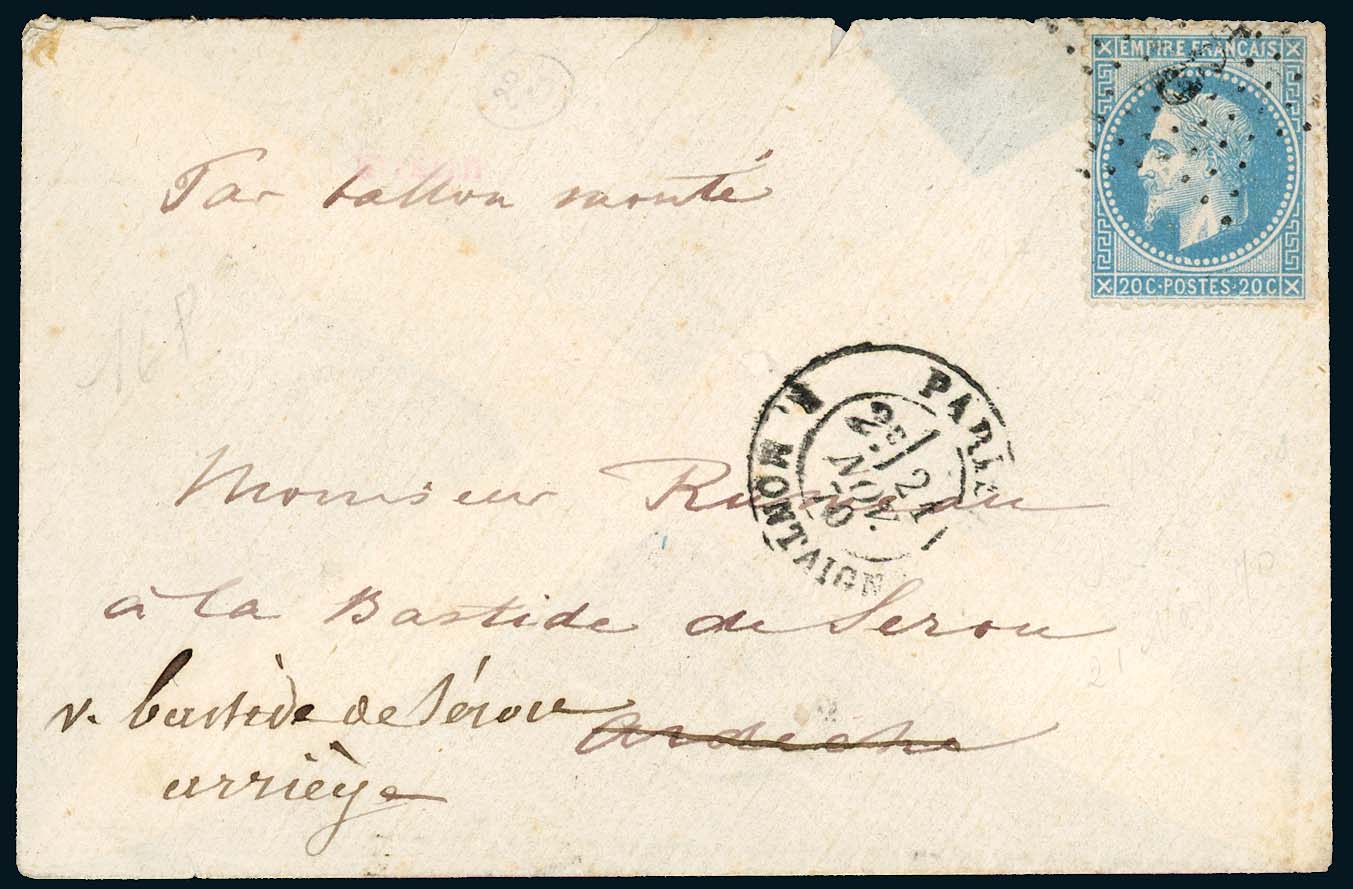 EMPIRE FRANÇAIS
20C·POSTES·20C
Par ballon monté
PARIS
R. MONTAIGN
2E/ 21
NOV.
70
Monsieur Rumeau
à la Bastide de Serou
v. bastide de Sérou
Ardèche
arriège